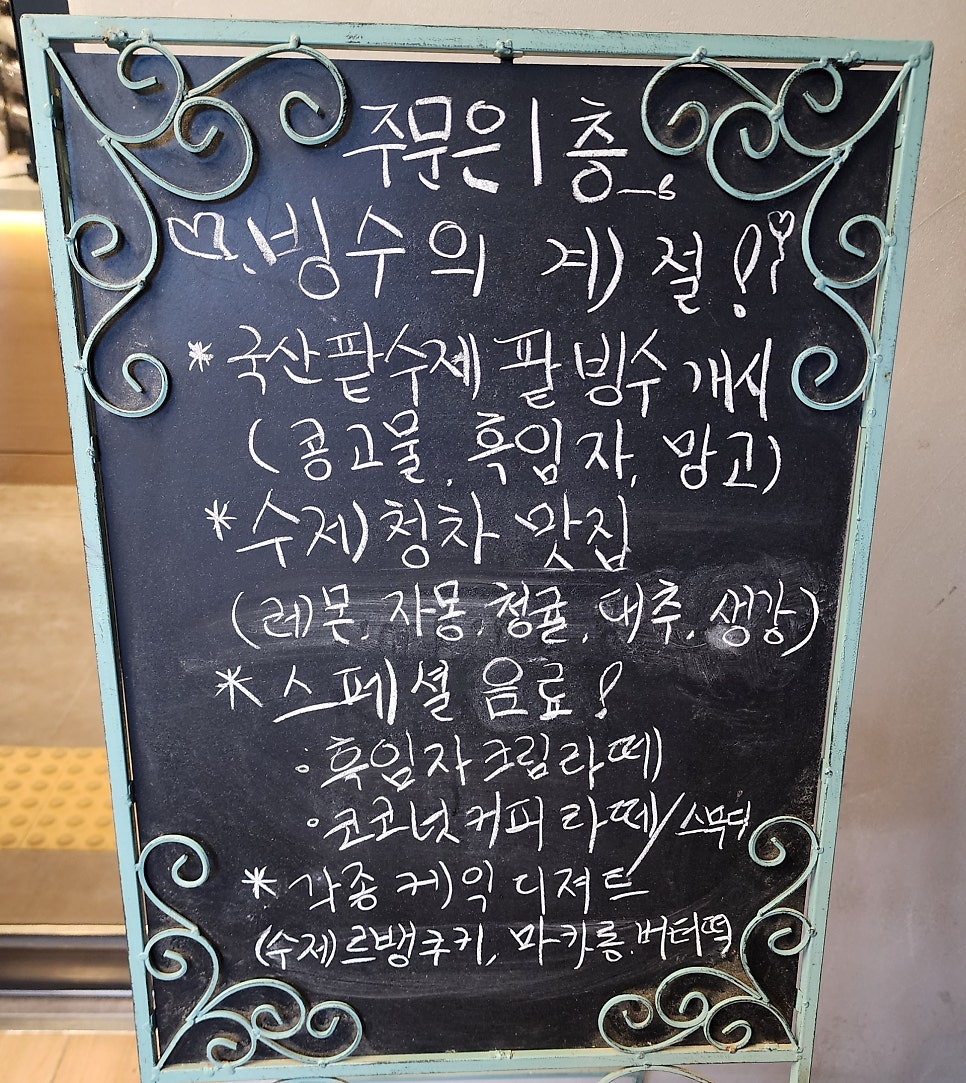 주문은 1층
빙수의 계절!
* 국산팥수제 팥빙수 개시
(콩고물, 흑임자, 망고)
* 수제청차 맛집
(레몬, 자몽, 청귤, 대추, 생강)
* 스페셜 음료!
· 흑임자크림라떼
· 코코넛커피라떼/스무디
* 각종 케익 디져트
(수제르뱅쿠키, 마카롱, 버터떡